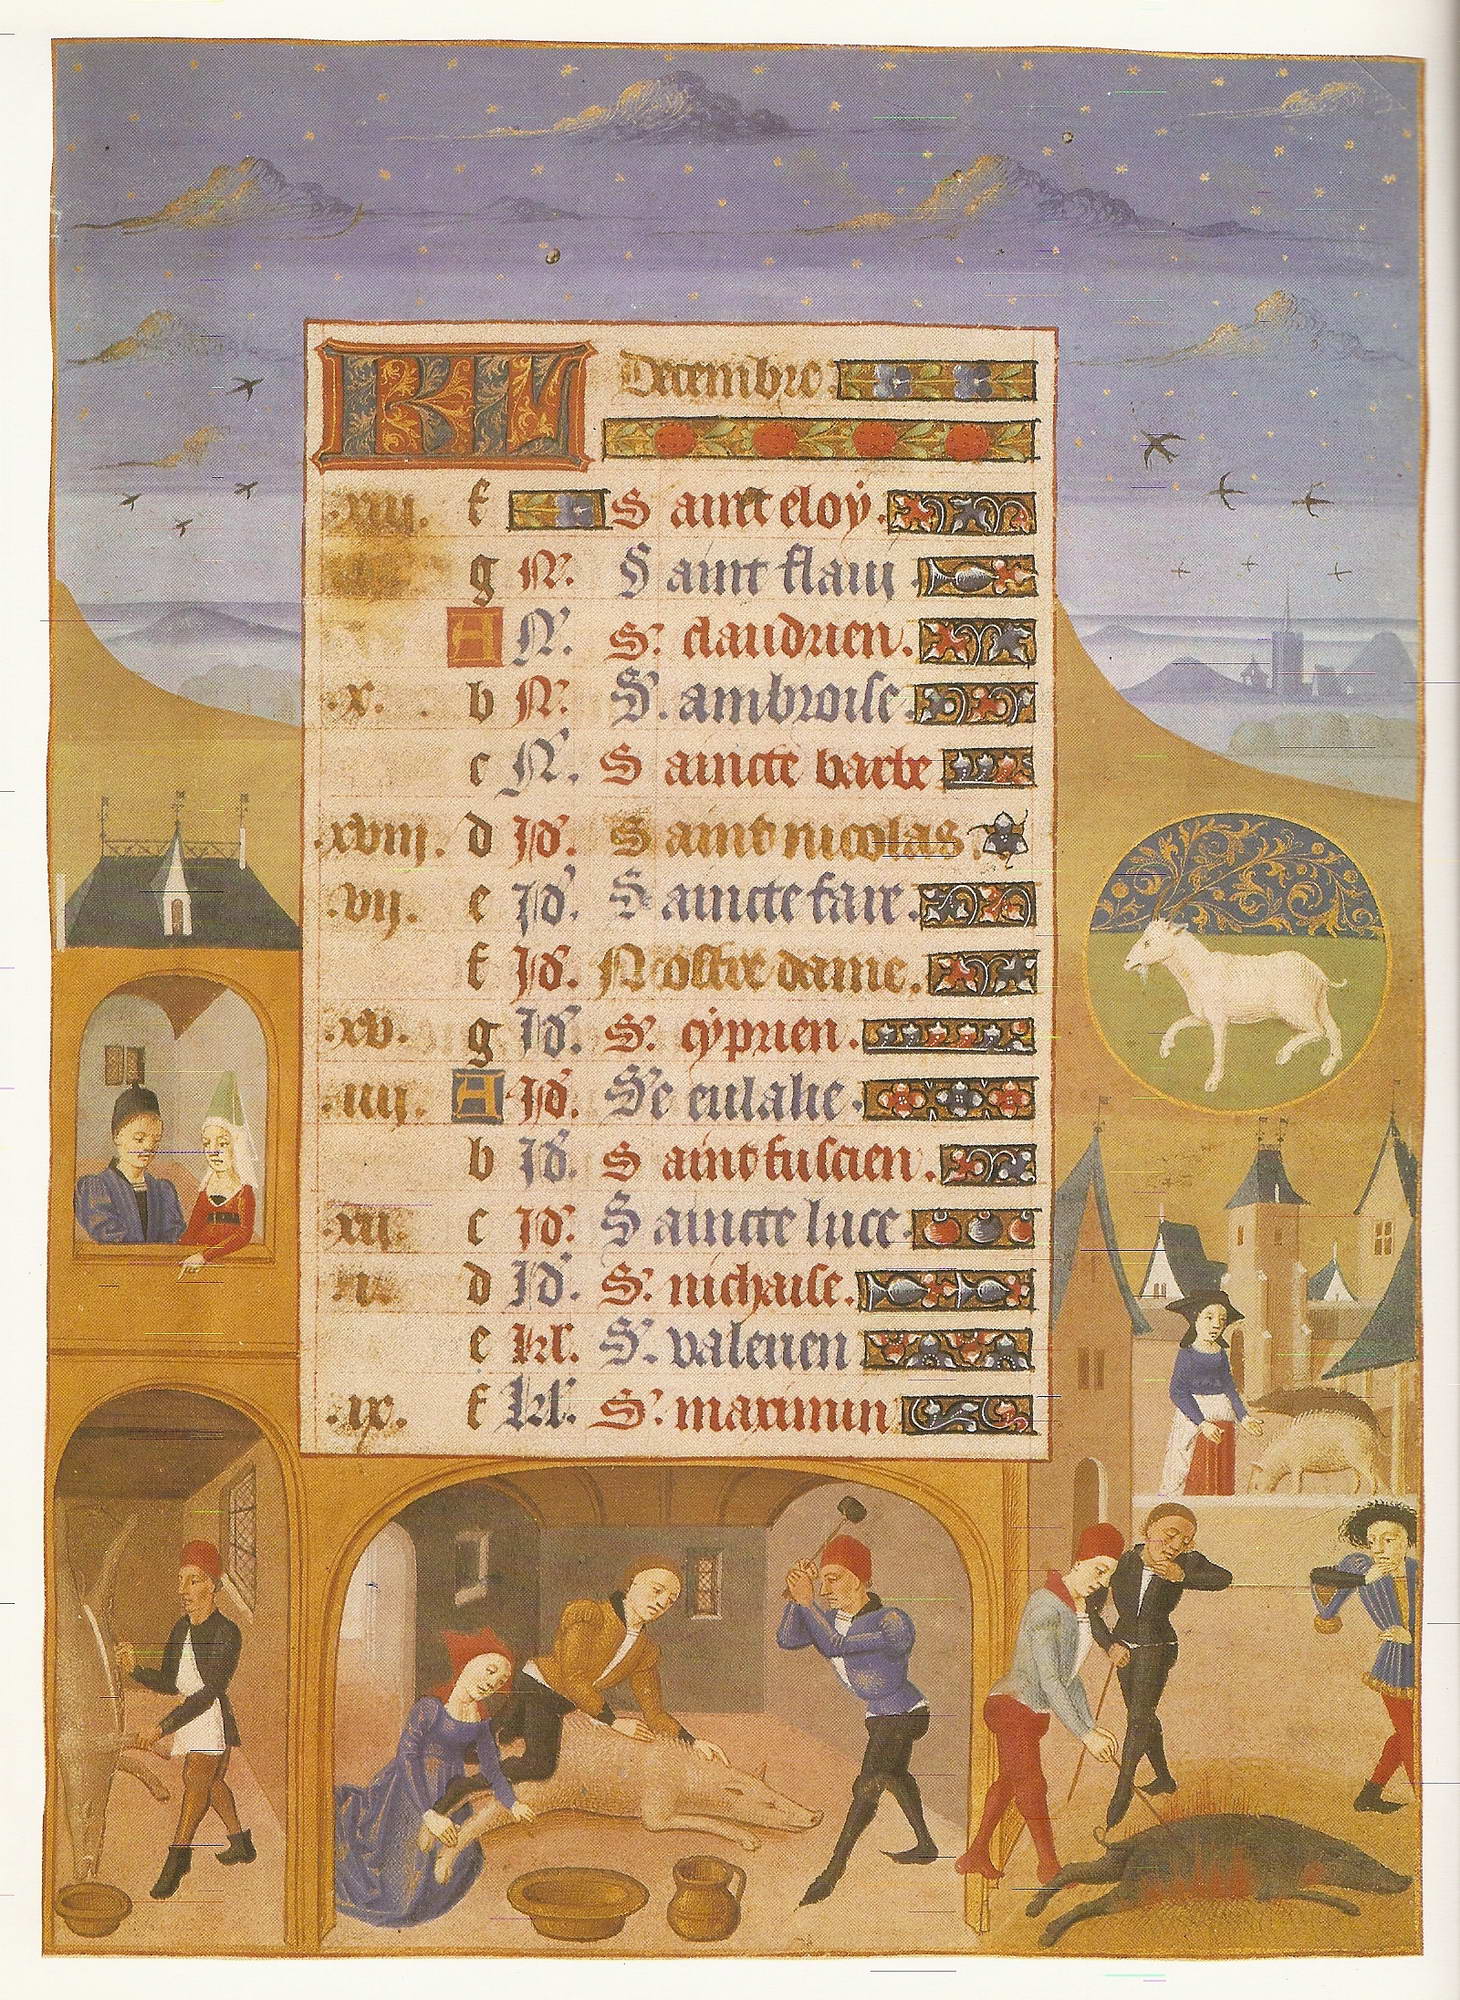 KL Decembre
.xiii. f Sainct eloy.
g N. Saint flaui
A N. S. claudien.
.x. b N. S. ambroise
c N. Saincte barbe
.xviii. d Id. Sainct nicolas.
.vij. e Id. Saincte fare.
f Id. Nostre dame.
.xv. g Id. S. cyprien.
.iiij. A Id. Se eulalie.
b Id. Sainct fuscien.
.xii. c Id. Saincte luce.
.i. d Id. S. nichaise.
e kl. S. valerien
.ix. f kl. S. maximin